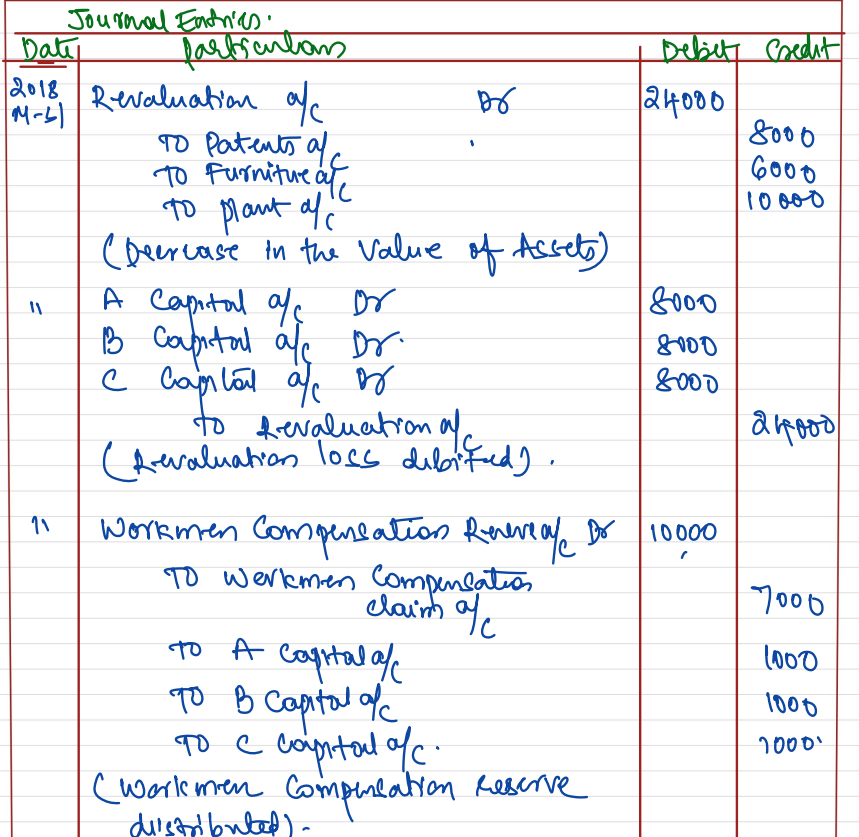 Journal Entries.
Date Particulars Debit Credit
2018 M-31 Revaluation a/c Dr 24000
To Patents a/c 8000
To Furniture a/c 6000
To plant a/c 10000
(Decrease in the Value of Assets)
" A Capital a/c Dr 8000
B Capital a/c Dr. 8000
C Capital a/c Dr 8000
To Revaluation a/c 24000
(Revaluation loss debited).
" Workmen Compensation Reserve a/c Dr 10000
To Workmen Compensation
claim a/c 7000
To A Capital a/c 1000
To B Capital a/c 1000
To C Capital a/c. 1000
(Workmen Compensation reserve
distributed).